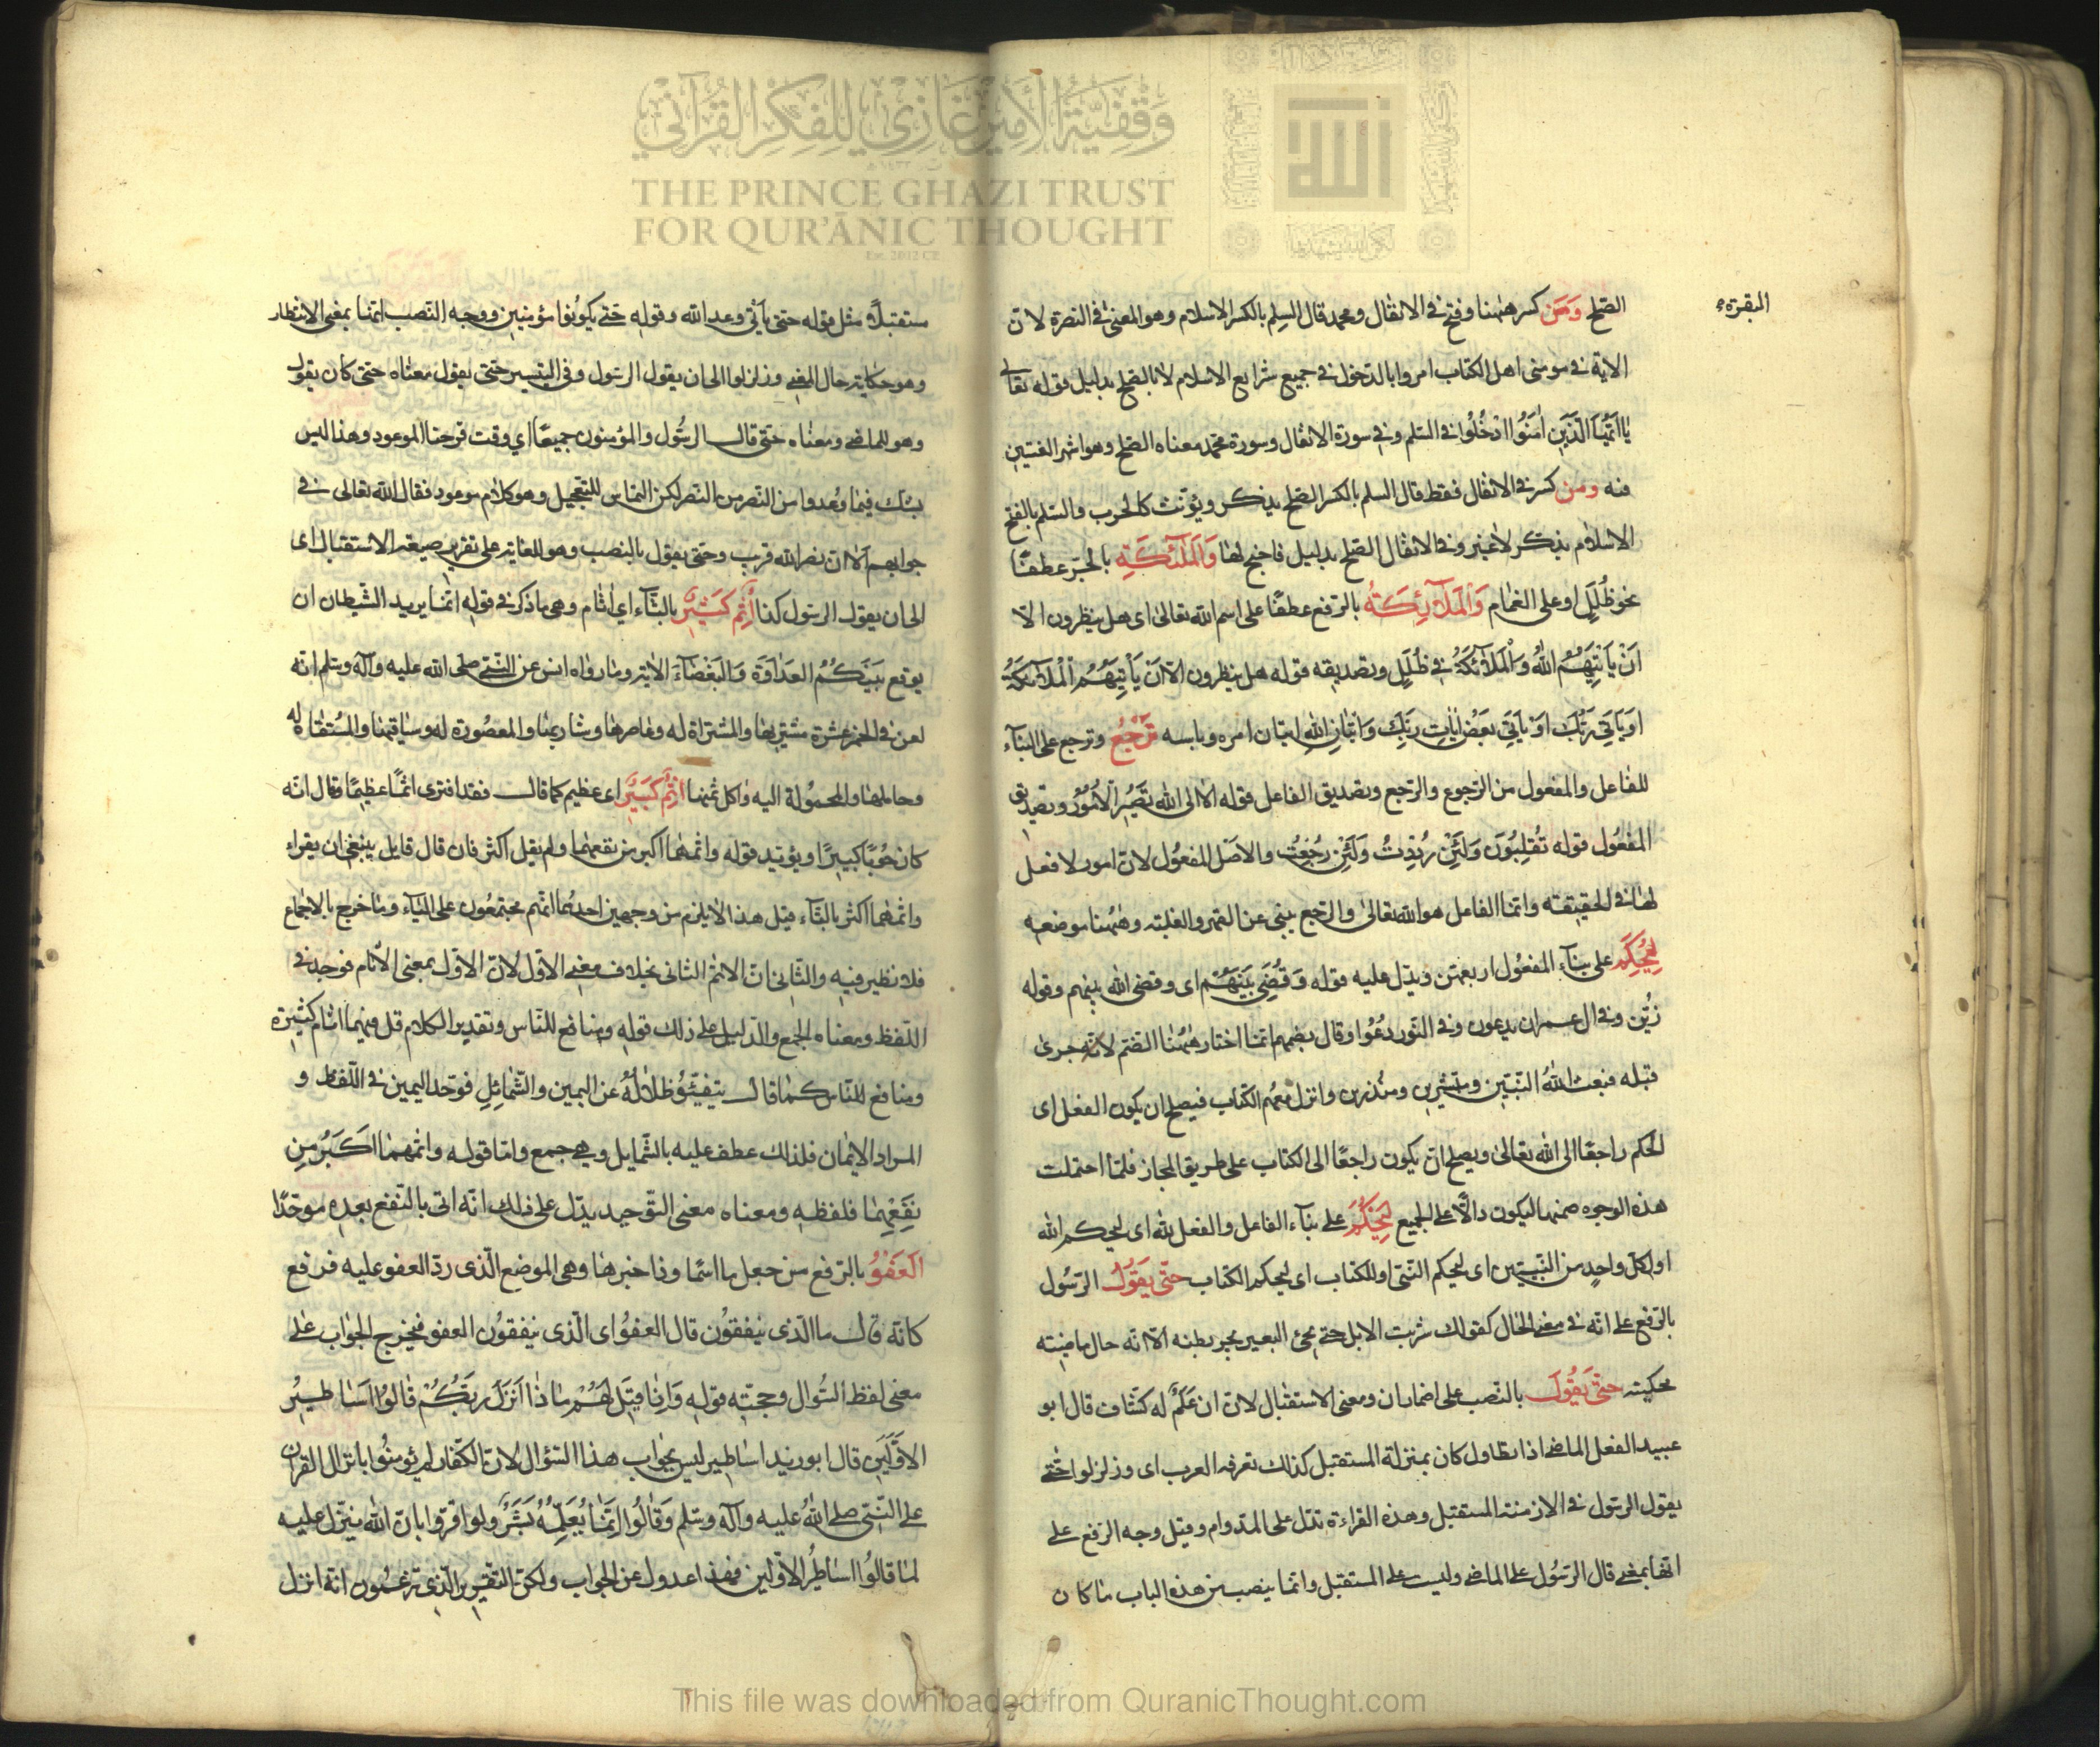 البقرة
الصلح ومن كسر ههنا وفتح في الانفال ومحمد قال السلم بالكسر الاسلام وهو المعنى في البقرة لان
الاية في مومنى اهل الكتاب امروا بالدخول في جميع شرايع الاسلام لا بالصلح بدليل قوله تعالى
يا ايها الذين امنوا ادخلوا في السلم وفي سورة الانفال وسورة محمد معناه الصلح وهو اشهر اللغتين
فيه ومن كسر في الانفال فقط قال السلم بالكسر الصلح يذكر ويؤنث كالحرب والسلم بالفتح
الاسلام يذكر لا غير وفي الانفال الصلح بدليل فاجنح لها وَالمَلَئكَةِ بالجر عطفًا
نحو ظُلَلٍ او على الغمام وَالْمَلَآئِكَةُ بالرفع عطفًا على اسم الله تعالى اى هل ينظرون الا
اَنْ يَأْتِيَهُمُ اللهُ وَالْمَلَآئكَةُ في ظُلَلٍ وتصديقه قوله هل ينظرون الا اَنْ يَأْتِيَهُمُ الْمَلَآئكَةُ
اوياتي ربك او ياتي بعض ايات ربك واتيان الله اتيان امره وباسه تَرْجِعُ وترجع على البناء
للفاعل والمفعول من الرجوع والرجع وتصديق الفاعل قوله الا الى الله تَصِيرُ الْاُمُوُرُ وتصديق
المفعُول قوله تُقلبُونَ وَلَئِنْ رُدِدتُ وَلَئِن رُجِعْتُ والاصل المفعُول لان امور لا فعل
لها في الحقيقة وانما الفاعل هو الله تعالى والرجع يبنى عن القهر والغلبة وههُنا موضعه
لِيُحْكَمَ على بناء المفعُول اربعتهن ويدل عليه قوله وَقُضِىَ بَيْنَهُم اى وقضى الله بينهم وقوله
زُيّن وفي ال عمران يدعون وفي النور دُعُوا وقال بعضهم انما اختار ههُنا الضم لانه جرى
قبله فبعث اللهُ النبيّين ومبشرين ومنذرين وانزل معهم الكتاب فيصلح ان يكون الفعل اى
الحكم راجعًا الى الله تعالى ويصلح ان يكون راجعًا الى الكتاب على طريق المجاز فلما احتملت
هذه الوجوه ضمها ليكون دالًا على الجميع لِيَحْكُمَ على بناء الفاعل والفعل لله اى ليحكم الله
او لكل واحدٍ من النبيّين اى ليحكم النبي او للكتاب اى ليحكم الكتاب حتّى يَقوُلُ الرسُول
بالرفع على انه في معنى الحال كقولك شربت الابل حتى يجئ البعير يجر بطنه الا انه حال ماضيته
محكيته حتىّ يَقُولَ بالنصب على اضمار ان ومعنى الاستقبال لان ان عَلَمٌ له كشاف قال ابو
عبيد الفعل الماضى اذا تطاول كان بمنزلة المستقبل كذلك تعرفه العرب اى وزلزلوا حتى
يقول الرسول في الازمنة المستقبل وهذه القراءة تدل على الدوام وقيل وجه الرفع على
انها بمعنى قال الرسُول على الماضى وليست على المستقبل وانما ينصب من هذه الباب ما كان
مستقبلًا مثل قوله حتى ياتى وعد الله وقوله حتى يكونوا مؤمنين ووجه النصب انما بمعنى الانتظار
وهو حكاية حال المضى وزلزلوا الى ان يقول الرسول وفي التيسير حتى يقول معناه حتى كان يقول
وهو للماضى ومعناه حتى قال الرسُول والمؤمنون جميعًا اي وقت فرجنا الموعود وهذا ليس
بشك فيما وُعدوا من النصر من النصر لكن التماس للتعجيل وهو كلام موعود فقال الله تعالى في
جوابهم الا ان نصر الله قرب وحتى يقول بالنصب وهو للغاية على تقرير صيغة الاستقبال اى
الى ان يقول الرسول كذا اِثْم كَثيْرٌ بالثاء اي اثام وهى ما ذكر في قوله انما يريد الشيطان ان
يوقع بَيْنَكُمُ العَدَاوَةَ وَالبَغْضَآءَ الاية وما رواه انس عن النبي صلى الله عليه وآله وسلم انه
لعن في الخمر عشرة مشتريها والمشتراة له وعاصرها وشاربها والمعصُورة له وساقيها والمُستقاة له
وحاملها والمحمُولة اليه واكل ثمنها اِثمٌ كَبيَرٌ اى عظيم كما قال فقد افترى اثمًا عظيمًا وقال انه
كان حُوبًا كبيرًا ويؤيد قوله واثمهما اكبر من نفعهما ولم يقل اكثر فان قال قايل ينبغى ان يقراء
واثمهما اكثر بالثاء قيل هذا لا يلزم من وجهين احدهما انهم مجتمعُون على الباء وما خرج بالاجماع
فلا نظير فيه والثاني ان الاثم الثانى بخلاف معنى الاول لان الاول بمعنى الاثام فوحد في
اللفظ ومعناه الجمع والدليل على ذلك قوله ومنافع للناس وتقدير الكلام قل فيهما اثام كثيرة
ومنافع للناس كما قال يتفيّئُوُ ظلالُهُ عن اليمين والشَّمائِلِ فوحد اليمين في اللفظ و
المراد الايمان فلذلك عطف عليه بالشمايل وهي جمع واما قوله واثمهما اَكَبَرُ مِن
نَفِعْهِمَا فلفظه ومعناه معنى التوحيد يدل على ذلك انه اتى بالنفع بعده موحدًا
العَفوُ بالرفع من جعل ما اسمًا وذا خبرها وهى الموضع الذى رد العفو عليه فرفع
كانه قال ما الذى ينفقوُن قال العفوُ اى الذى ينفقوُن العفو فيخرج الجواب على
معنى لفظ السُوال وحجته قوله وَاِذَا قِيَلَ لَهُمْ مَا ذا اَنْزَلَ رَبُّكُمْ قَالُوُا اَسَاطيِرُ
الاوَّلَين قال ابو زيد اساطير ليس بجواب هذا السؤال لان الكفار لم يؤمنُوا بانزال القران
على النبّى صلى اللهُ عليه وآله وسلم وَقَالُوُا اِنَّمَا يُعَلِّمُهُ بَشَرٌ ولو اقرّوا بان الله منزل عليه
لما قالوُا اساطيرُ الاولين فهذا عدول عن الجواب ولكن التقدير الّذى تزعمُون انه انزل
وقفية الأمير غازي للفكر القرآني
THE PRINCE GHAZI TRUST
FOR QUR'ĀNIC THOUGHT
Est. 2012 CE
This file was downloaded from QuranicThought.com